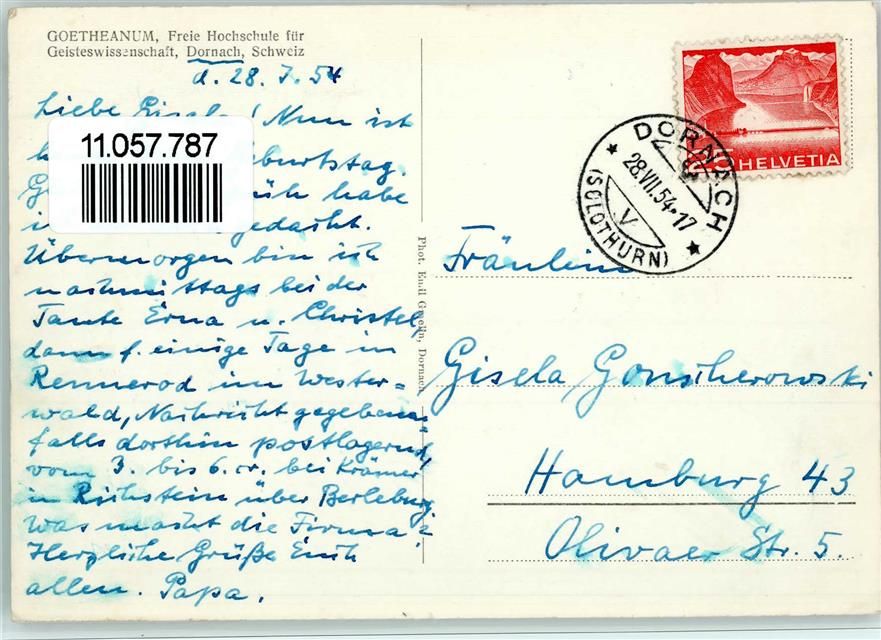 GOETHEANUM, Freie Hochschule für
Geisteswissenschaft, Dornach, Schweiz
d. 28. 7. 54
Liebe Gisela! Nun ist
burtstag.
früh habe
gedacht.
Übermorgen bin ich
nachmittags bei der
Tante Erna u. Christel,
dann f. einige Tage in
Rennerod im Wester=
wald, Nachricht gegebenen=
falls dorthin postlagernd,
vom 3. bis 6. cr. bei Krämer
in Richstein über Berleburg.
Was macht die Firma?
Herzliche Grüße Euch
allen. Papa.
11.057.787
Phot. Emil Gmelin, Dornach
5 HELVETIA
DORNACH
28.VII.54-17
V
(SOLOTHURN)
Fräulein
Gisela Gonscherowski
Hamburg 43
Olivaer Str. 5.